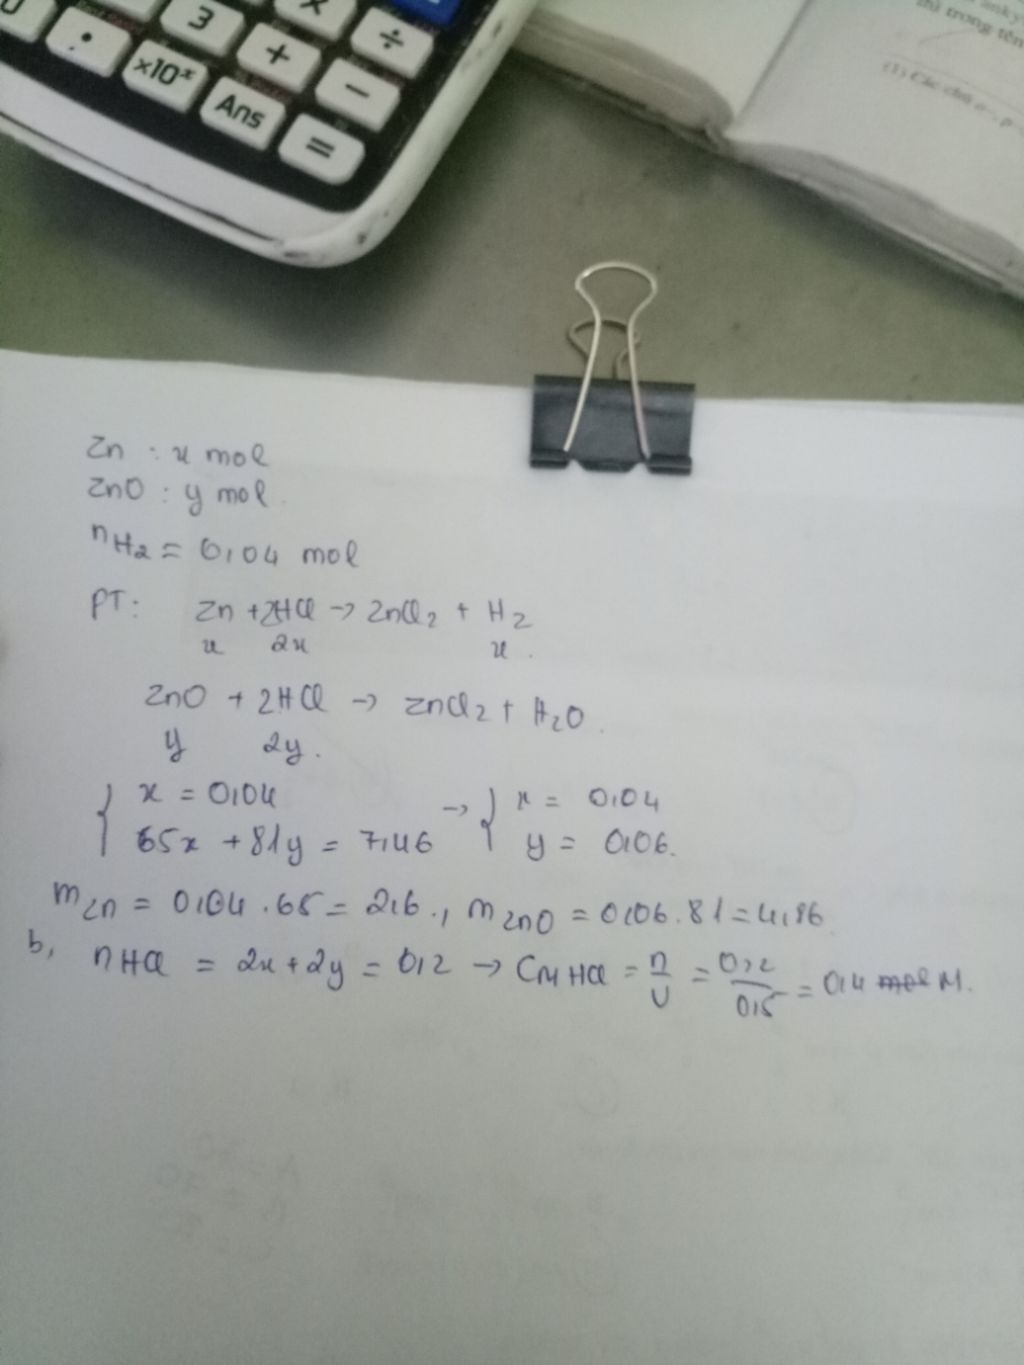 3 × ÷
• + −
×10ˣ Ans =
thì trong tên
(1) Các chất
Zn : x mol
ZnO : y mol.
nH2 = 0,04 mol
PT: Zn + 2HCl → ZnCl2 + H2
x 2x x.
ZnO + 2HCl → ZnCl2 + H2O.
y 2y.
{ x = 0,04 → { x = 0,04
65x + 81y = 7,46 y = 0,06.
mZn = 0,04.65 = 2,6., mZnO = 0,06.81 = 4,86
b, nHCl = 2x + 2y = 0,2 → CM HCl = n/V = 0,2/0,5 = 0,4 mol M.